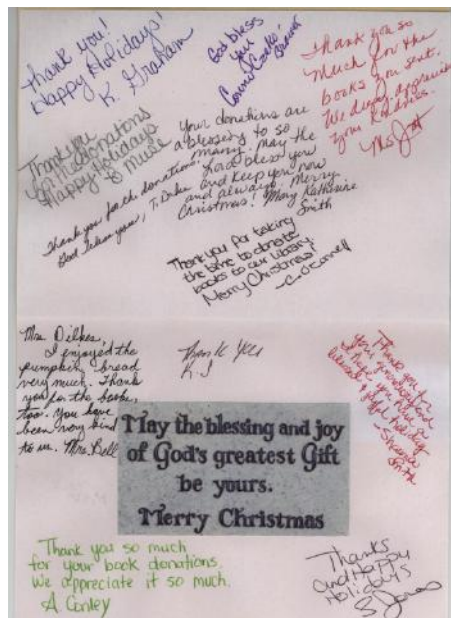 Thank you!
Happy Holidays!
K. Graham
God bless
you
Thank you so
Much for the
books you sent.
We deeply appreciate
your kindness.
Thank you
for the donations
Happy Holidays
Your donations are
a blessing to so
many. May the
Lord bless you
and keep you now
and always. Merry
Christmas! Mary Katherine
Smith
Thank you for the donations.
God bless you,
Thank you for taking
the time to donate
books to our library.
Merry Christmas!
Mrs. Dilkes,
I enjoyed the
pumpkin bread
very much. Thank
you for the books,
too. You have
been very kind
to us. Mrs. Bell
Thank You
K.J
Thank you for
May the blessing and joy
of God's greatest Gift
be yours.
Merry Christmas
Thank you so much
for your book donations.
We appreciate it so much.
A. Conley
Thanks
and Happy
Holidays
S. Jones